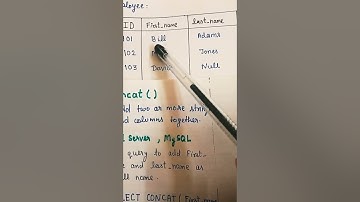 ployee:
ID First_name last_name
101 Bill Adams
102 Jones
103 David Null
concat()
two or more string
nd columns together.
Server, MySQL
query to add First_
e and last_name as
ll name.
LECT CONCAT (First_nam